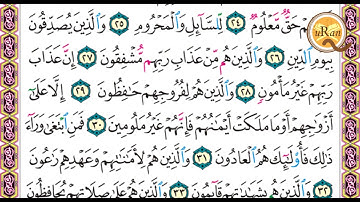 حَقٌّ مَّعْلُومٌ ٢٤ لِّلسَّآئِلِ وَالْمَحْرُومِ ٢٥ وَالَّذِينَ يُصَدِّقُونَ
بِيَوْمِ الدِّينِ ٢٦ وَالَّذِينَ هُم مِّنْ عَذَابِ رَبِّهِم مُّشْفِقُونَ ٢٧ إِنَّ عَذَابَ
رَبِّهِمْ غَيْرُ مَأْمُونٍ ٢٨ وَالَّذِينَ هُمْ لِفُرُوجِهِمْ حَافِظُونَ ٢٩ إِلَّا عَلَىٰٓ
أَزْوَاجِهِمْ أَوْ مَا مَلَكَتْ أَيْمَانُهُمْ فَإِنَّهُمْ غَيْرُ مَلُومِينَ ٣٠ فَمَنِ ابْتَغَىٰ وَرَآءَ
ذَٰلِكَ فَأُو۟لَٰٓئِكَ هُمُ الْعَادُونَ ٣١ وَالَّذِينَ هُمْ لِأَمَانَاتِهِمْ وَعَهْدِهِمْ رَاعُونَ
٣٢ وَالَّذِينَ هُم بِشَهَادَاتِهِمْ قَآئِمُونَ ٣٣ وَالَّذِينَ هُمْ عَلَىٰ صَلَاتِهِمْ يُحَافِظُونَ
uRan